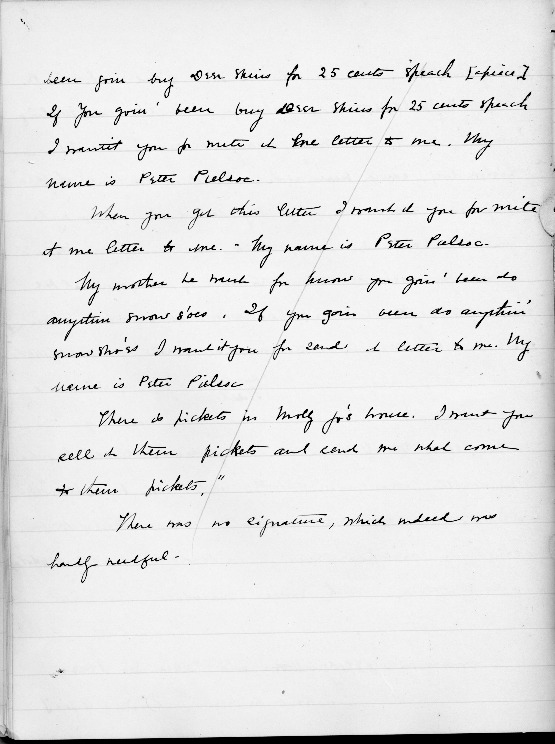 been goin buy Deer Skins for 25 cents speach [apiece]
If You goin' been buy deer skins for 25 cents speach
I wantit you for write it one letter to me. My
name is Peter Pielsoc.
When you get this letter I want it you for write
it me letter to me. - My name is Peter Pielsoc.
My mother he want for know you goin' been do
anythin snow s'oes. If you goin been do anythin'
snow sho'es I want it you for send it letter to me. My
name is Peter Pielsoc
There is pickets in Molly Jo's house. I want you
sell it them pickets and send me what come
to them pickets."
There was no signature, which indeed was
hardly needful.